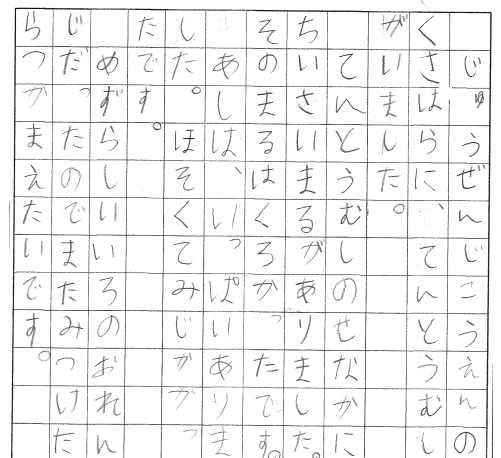 じゅうぜんじこうえんの
くさはらに、てんとうむし
がいました。
てんとうむしのせなかに
ちいさいまるがありました。
そのまるはくろかったです。
あしは、いっぱいありま
した。ほそくてみじかかっ
たです。
めずらしいいろのおれん
じだったのでまたみつけた
らつかまえたいです。